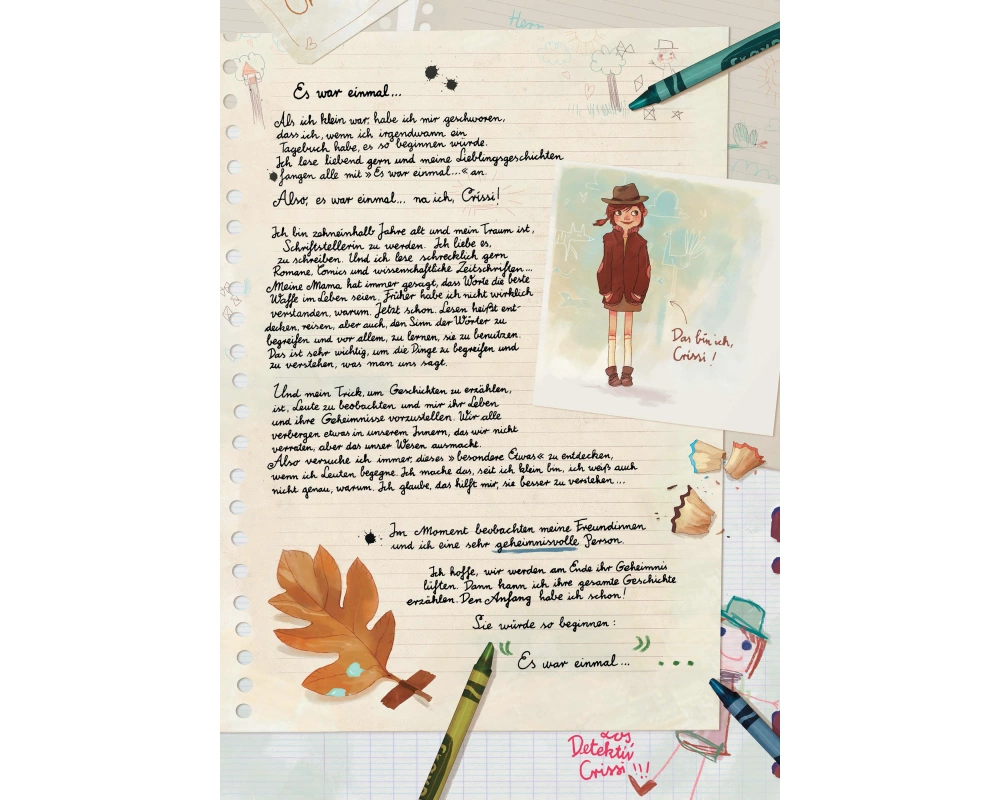 Es war einmal...
Als ich klein war, habe ich mir geschworen,
dass ich, wenn ich irgendwann ein
Tagebuch habe, es so beginnen würde.
Ich lese liebend gern und meine Lieblingsgeschichten
fangen alle mit »Es war einmal...« an.
Also, es war einmal... na ich, Crissi!
Ich bin zehneinhalb Jahre alt und mein Traum ist,
Schriftstellerin zu werden. Ich liebe es,
zu schreiben. Und ich lese schrecklich gern
Romane, Comics und wissenschaftliche Zeitschriften...
Meine Mama hat immer gesagt, dass Worte die beste
Waffe im Leben seien. Früher habe ich nicht wirklich
verstanden, warum. Jetzt schon. Lesen heißt ent-
decken, reisen, aber auch, den Sinn der Wörter zu
begreifen und vor allem, zu lernen, sie zu benutzen.
Das ist sehr wichtig, um die Dinge zu begreifen und
zu verstehen, was man uns sagt.
Das bin ich,
Crissi!
Und mein Trick, um Geschichten zu erzählen,
ist, Leute zu beobachten und mir ihr Leben
und ihre Geheimnisse vorzustellen. Wir alle
verbergen etwas in unserem Innern, das wir nicht
verraten, aber das unser Wesen ausmacht.
Also versuche ich immer, dieses »besondere Etwas« zu entdecken,
wenn ich Leuten begegne. Ich mache das, seit ich klein bin, ich weiß auch
nicht genau, warum. Ich glaube, das hilft mir, sie besser zu verstehen...
Im Moment beobachten meine Freundinnen
und ich eine sehr geheimnisvolle Person.
Ich hoffe, wir werden am Ende ihr Geheimnis
lüften. Dann kann ich ihre gesamte Geschichte
erzählen. Den Anfang habe ich schon!
Sie würde so beginnen:
« Es war einmal... » ...
Los
Detektiv
Crissi!!!